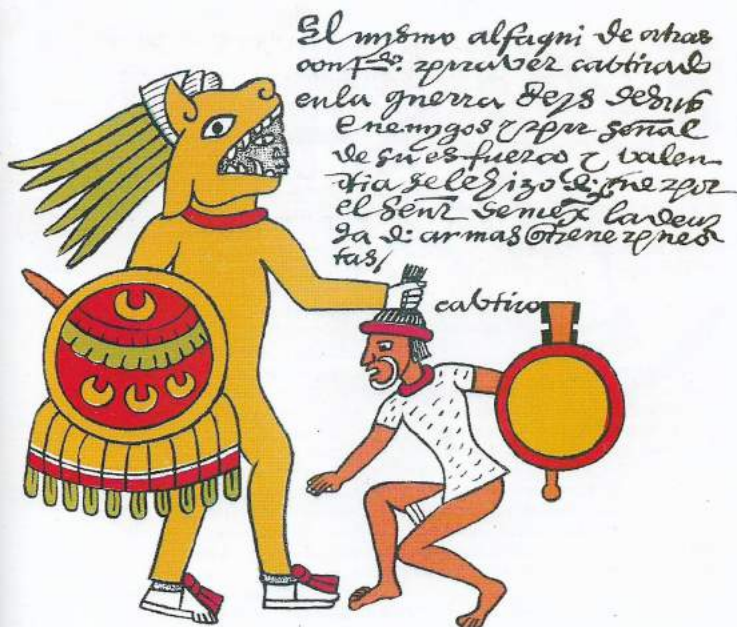 El mysmo alfaqui de otras
con f^do. y por aver cabtivado
en la guerra seys de sus
enemygos y por señal
de su esfuerço y valen
tia se le hizo md. por
el señr de mexco la devi
sa de armas que tiene puestas
tas/
cabtivo